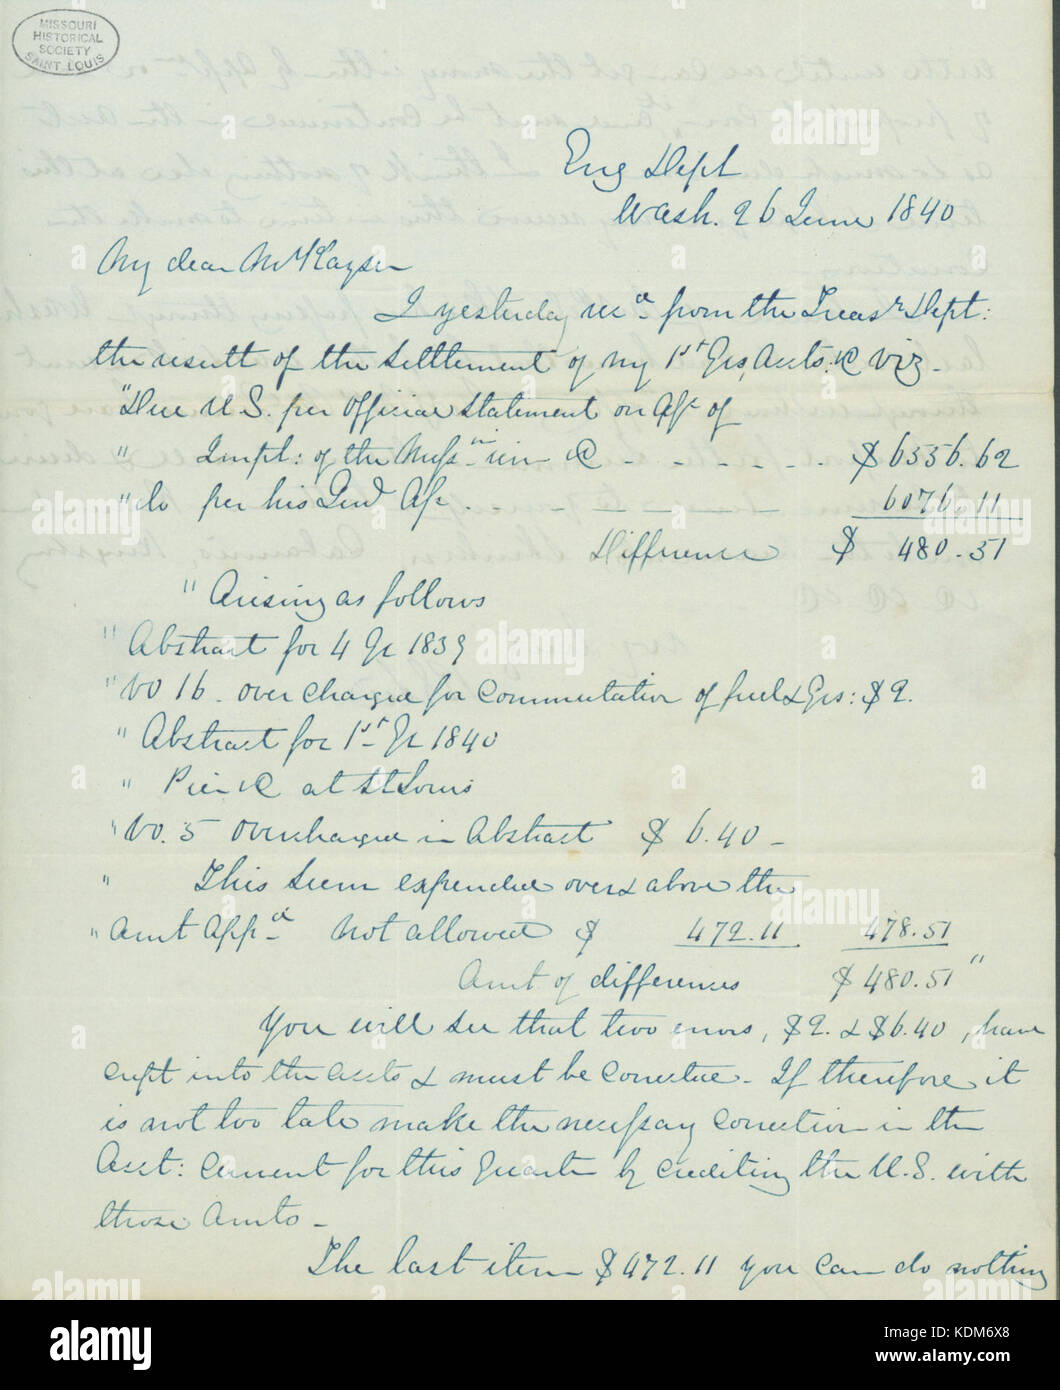 MISSOURI
HISTORICAL
SOCIETY
SAINT LOUIS
Eng Dept
Wash. 26 June 1840
My dear Mr Kayser
I yesterday recd from the Treasr Dept:
the result of the settlement of my 1st Qrs, Accts: &c viz -
"Due U.S. per official statement on a/c of
" Impt: of the Missn riv &c - - - - - . . $6556.62
"do per his Qend a/c . . . 6076.11
Difference $ 480.51
" Arising as follows
" Abstract for 4 Qr 1839
"Vo 16 - over charged for commutation of fuel & Qrs: $2.
" Abstract for 1st Qr 1840
" Pier &c at St Louis
"Vo. 5 overcharged in Abstract $ 6.40 -
" This sum expended over & above the
" amt appd not allowed $ 472.11 478.51
Amt of differences $ 480.51 "
You will see that two errors, $2. & $6.40, have
crept into the accts & must be corrected - If therefore it
is not too late make the necessary correction in the
Acct: current for this Quarter by crediting the U.S. with
those amts -
The last item $472.11 you can do nothing
alamy
Image ID: KDM6X8
www.alamy.com